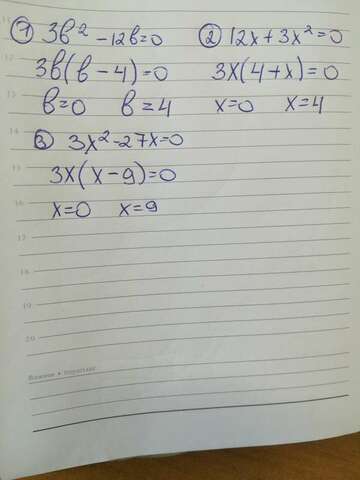 ① 3в² - 12в=0
3в(в - 4)=0
в=0 в=4
② 12x + 3x² = 0
3x(4+x) = 0
x=0 x=4
③ 3x² - 27x=0
3x(x - 9)=0
x=0 x=9
11
12
13
14
15
16
17
18
19
20